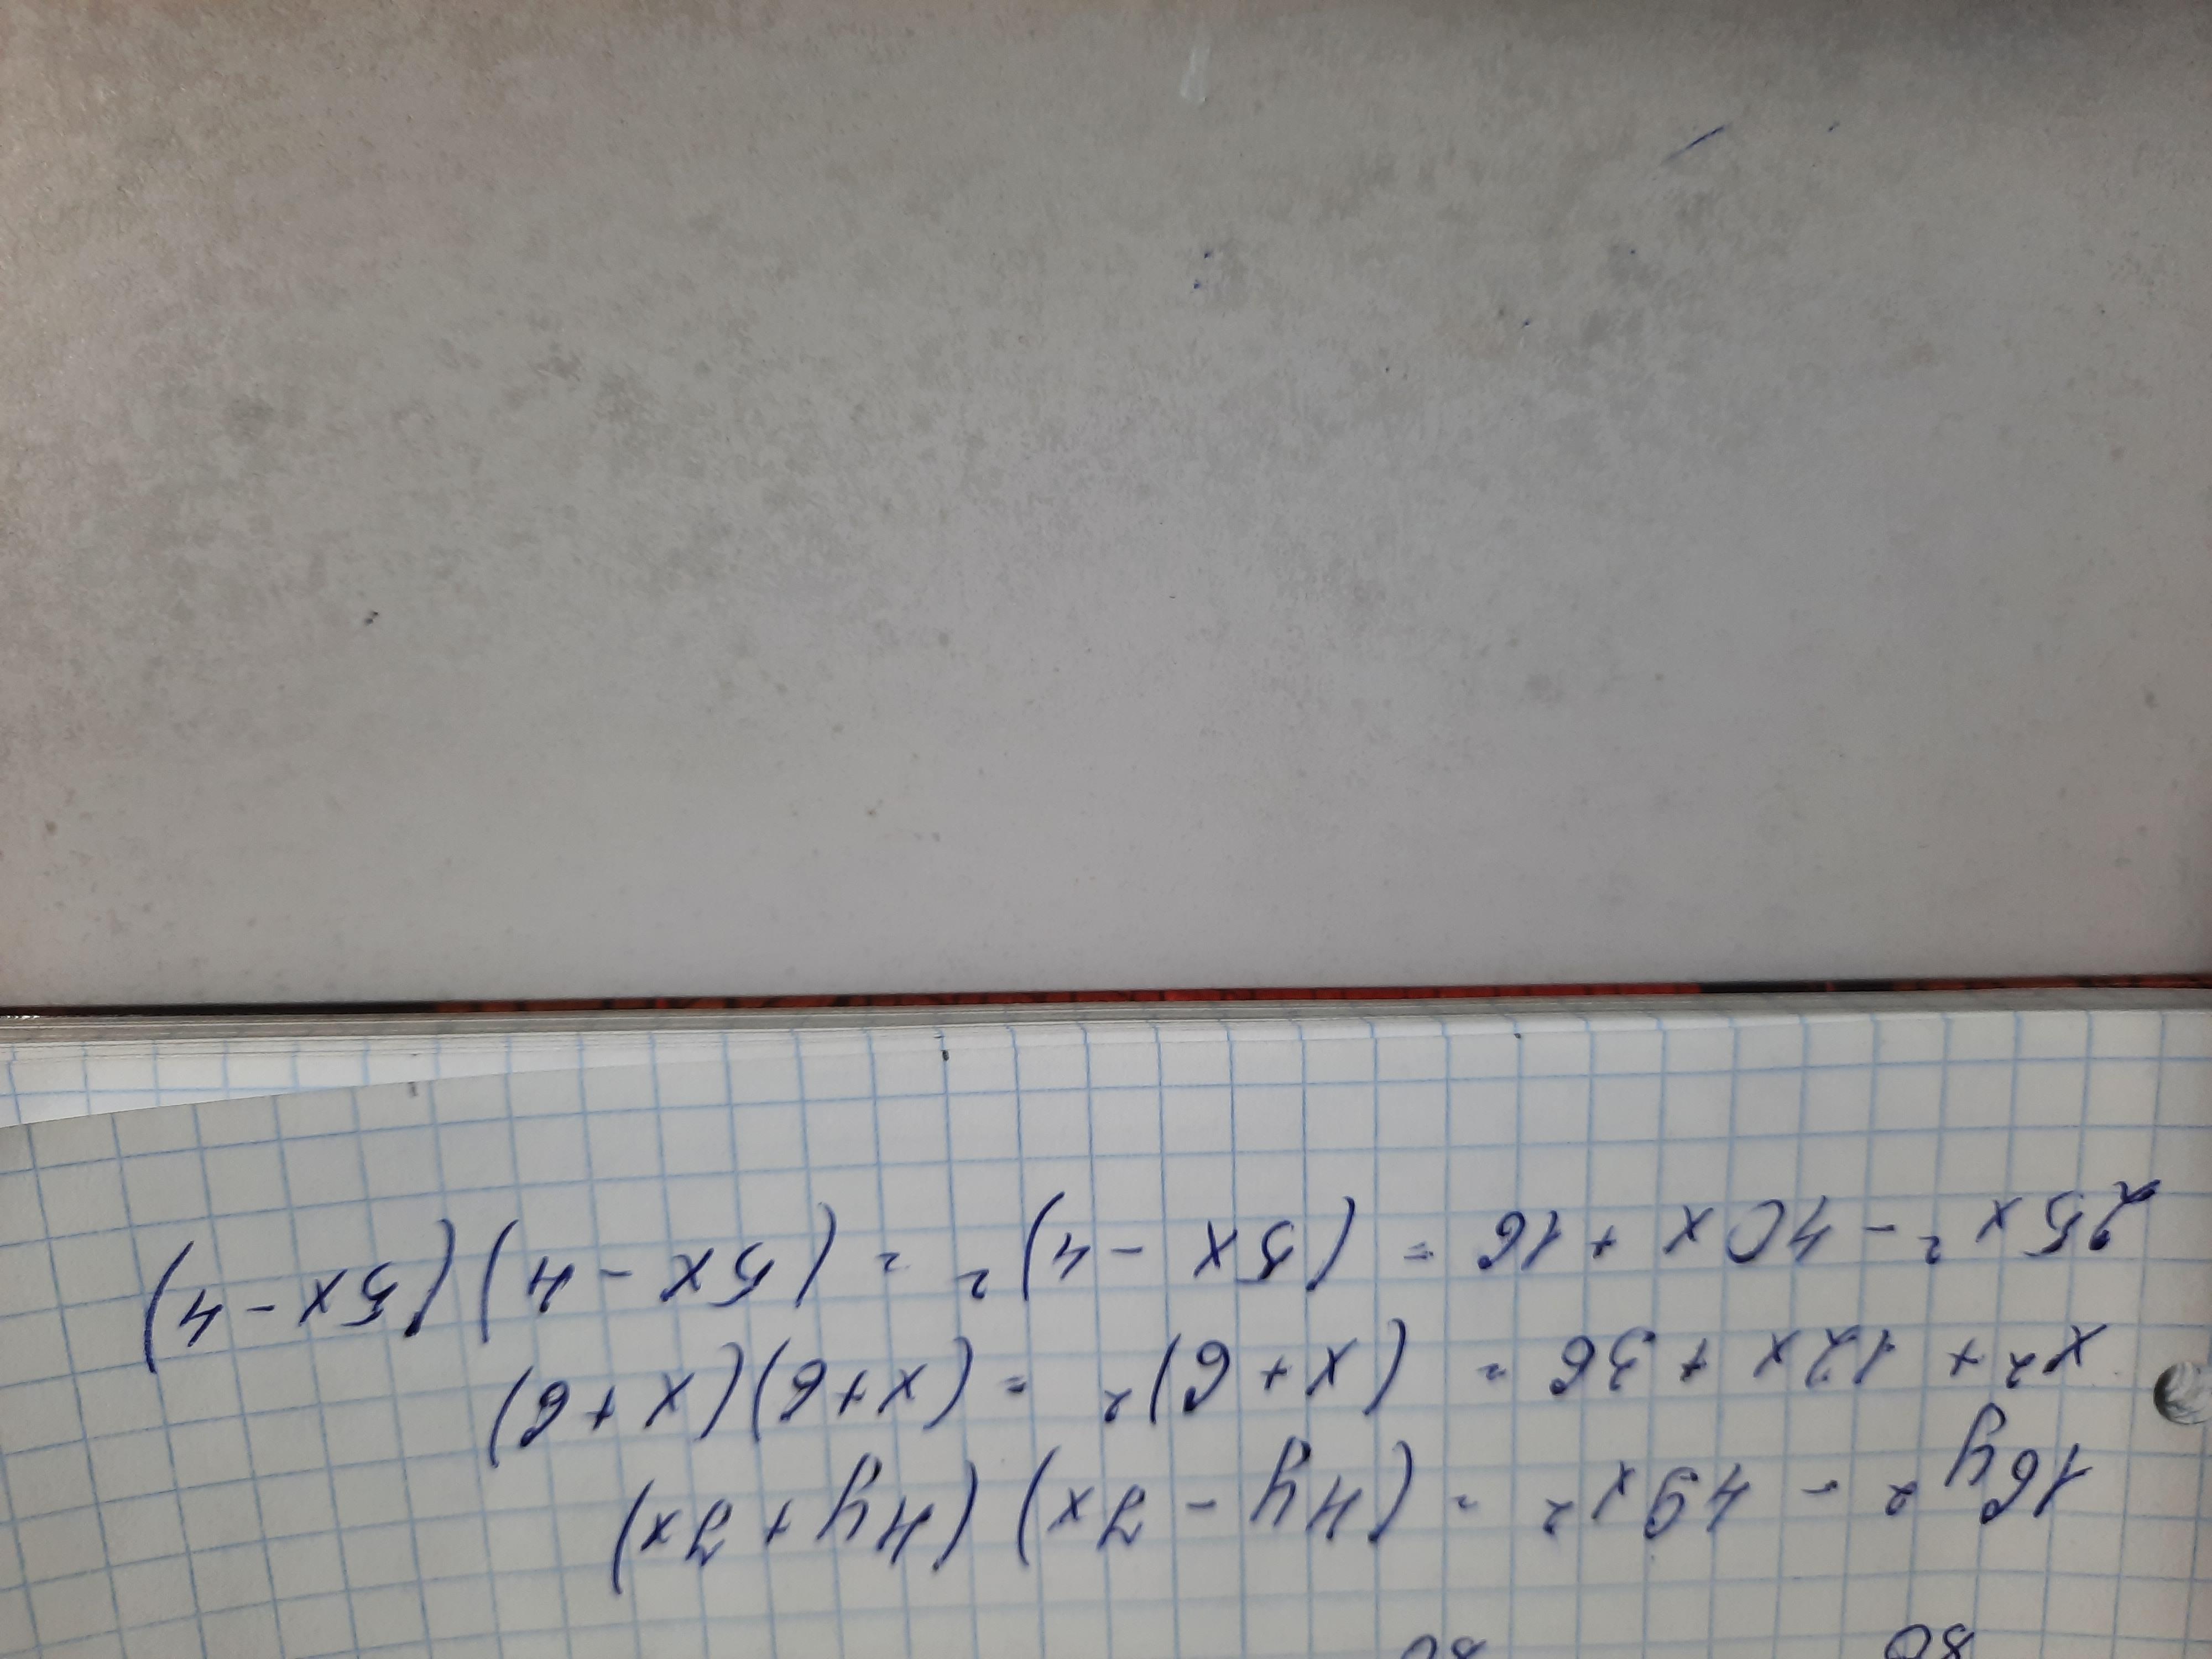 80 80
16y² - 49x² = (4y - 7x)(4y + 7x)
x² + 12x + 36 = (x + 6)² = (x + 6)(x + 6)
25x² - 40x + 16 = (5x - 4)² = (5x - 4)(5x - 4)